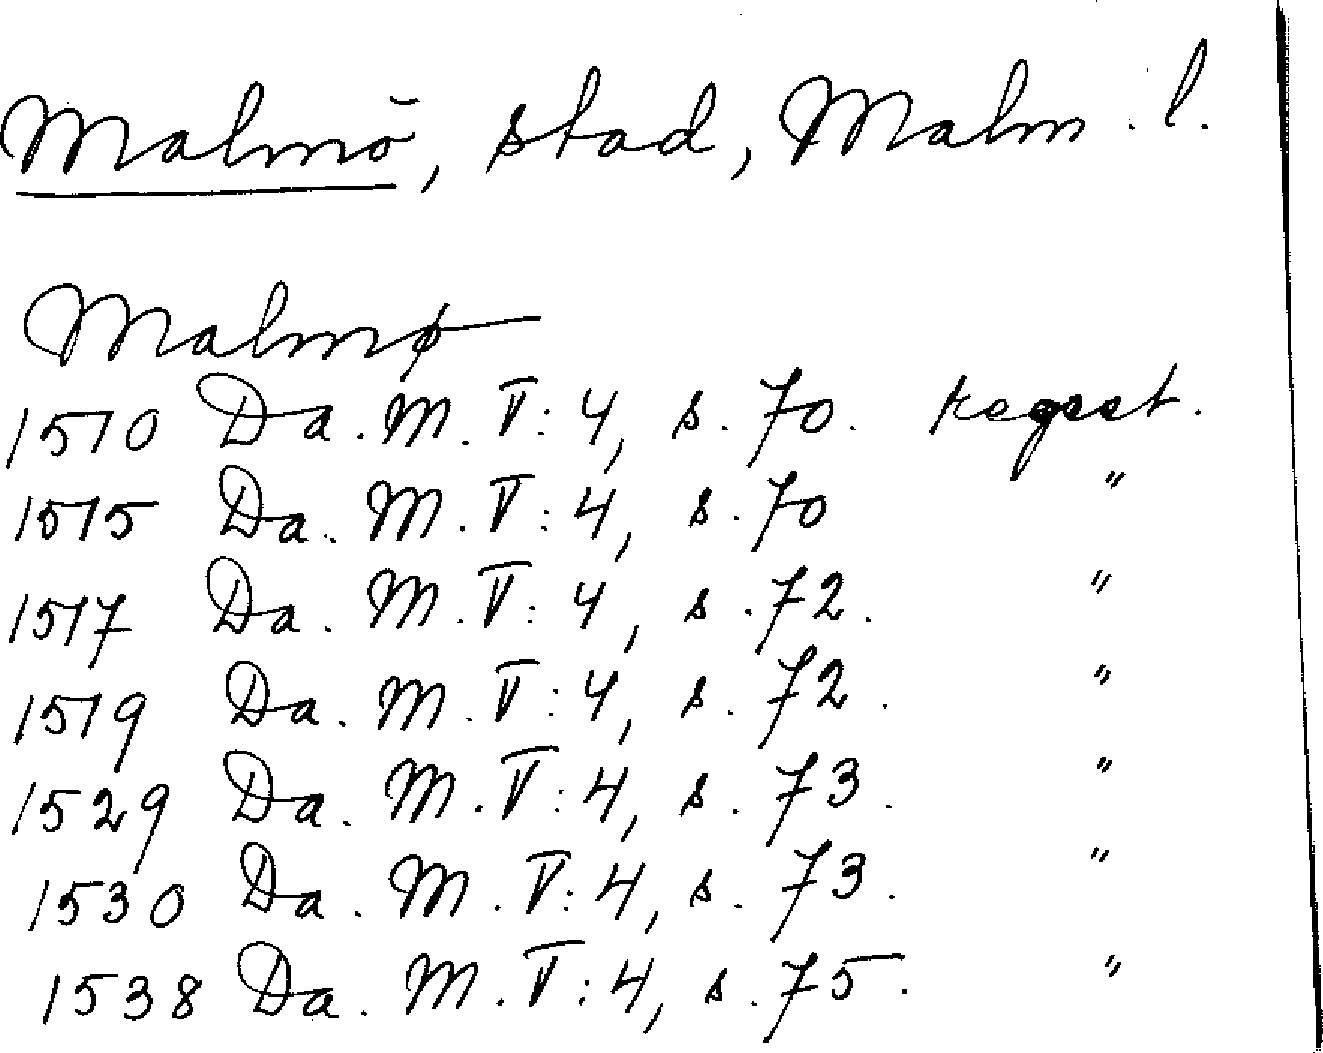 Malmö, stad, Malm. l.
Malmø
1510 Da. M. V: 4, s. 70. regest.
1515 Da. M. V: 4, s. 70 "
1517 Da. M. V: 4, s. 72. "
1519 Da. M. V: 4, s. 72. "
1529 Da. M. V: 4, s. 73. "
1530 Da. M. V: 4, s. 73. "
1538 Da. M. V: 4, s. 75. "